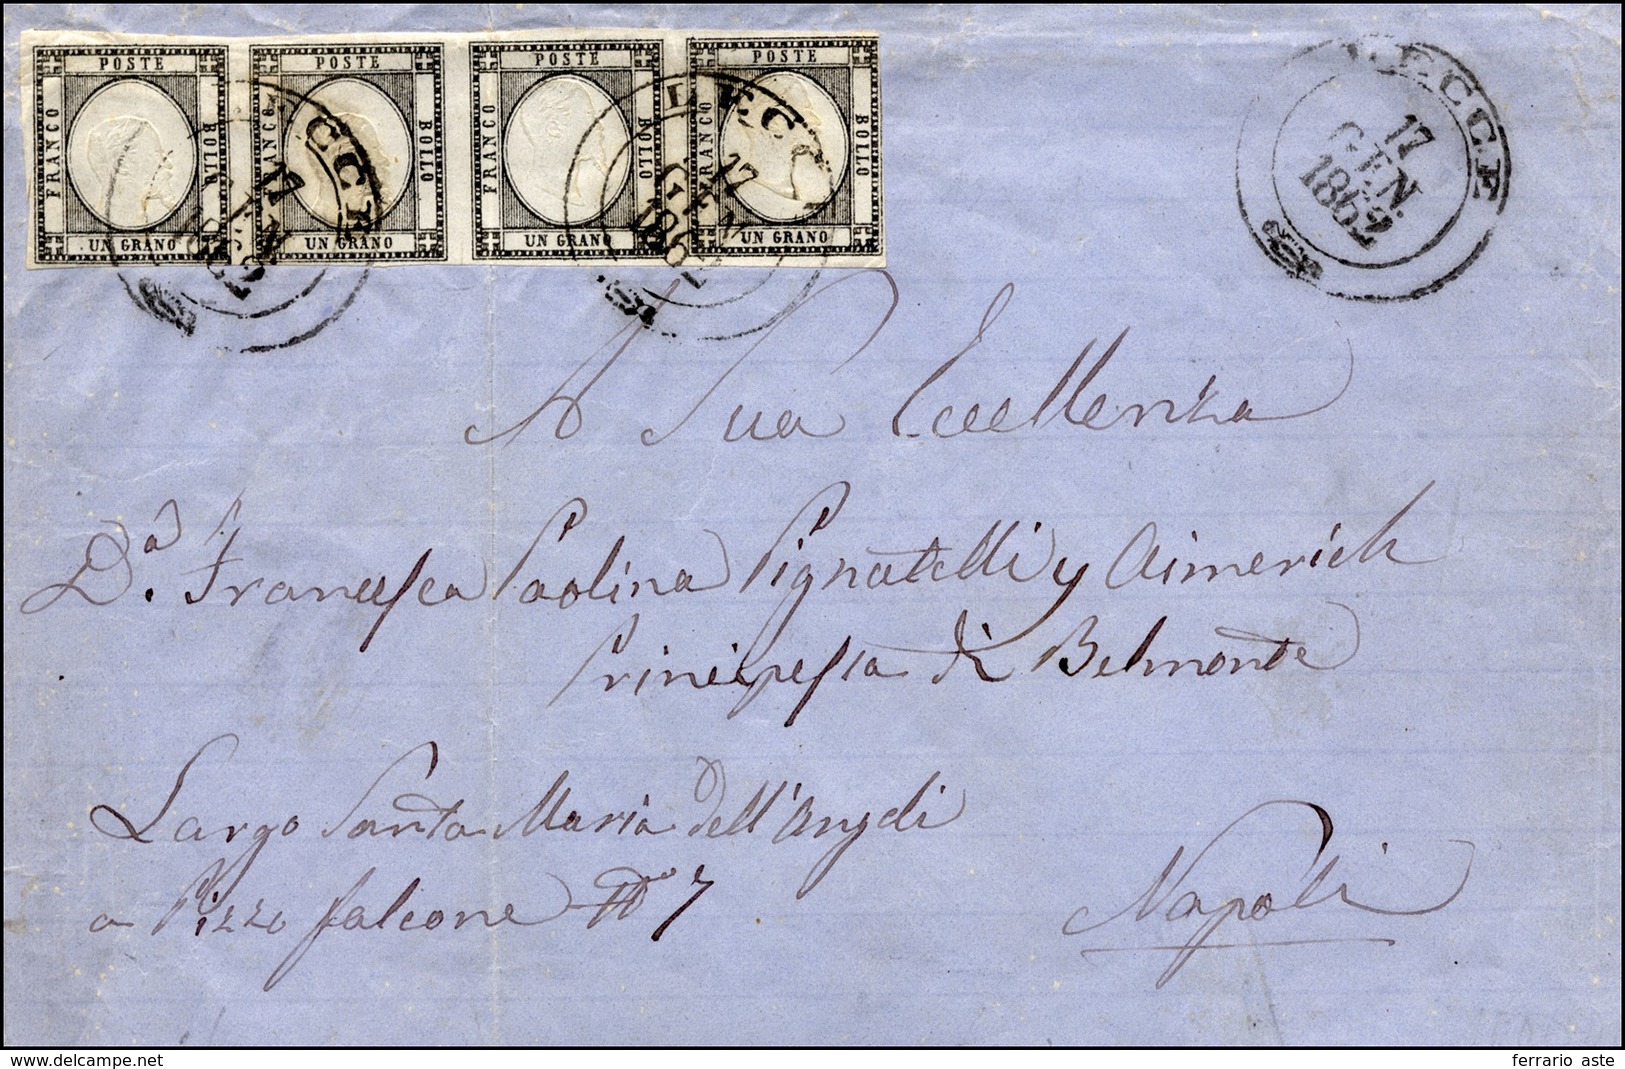 POSTE POSTE POSTE POSTE
FRANCO BOLLO FRANCO BOLLO FRANCO BOLLO FRANCO BOLLO
UN GRANO UN GRANO UN GRANO UN GRANO
LECCE
17
GEN.
1862
LECCE
17
GEN.
1862
LECCE
17
GEN.
1862
A Sua Eccellenza
D.ª Francesca Paolina Pignatelli y Aimerich
Principessa di Belmonte
Largo Santa Maria dell'Angeli
a Pizzo falcone 7
Napoli
www.delcampe.net
ferrario aste